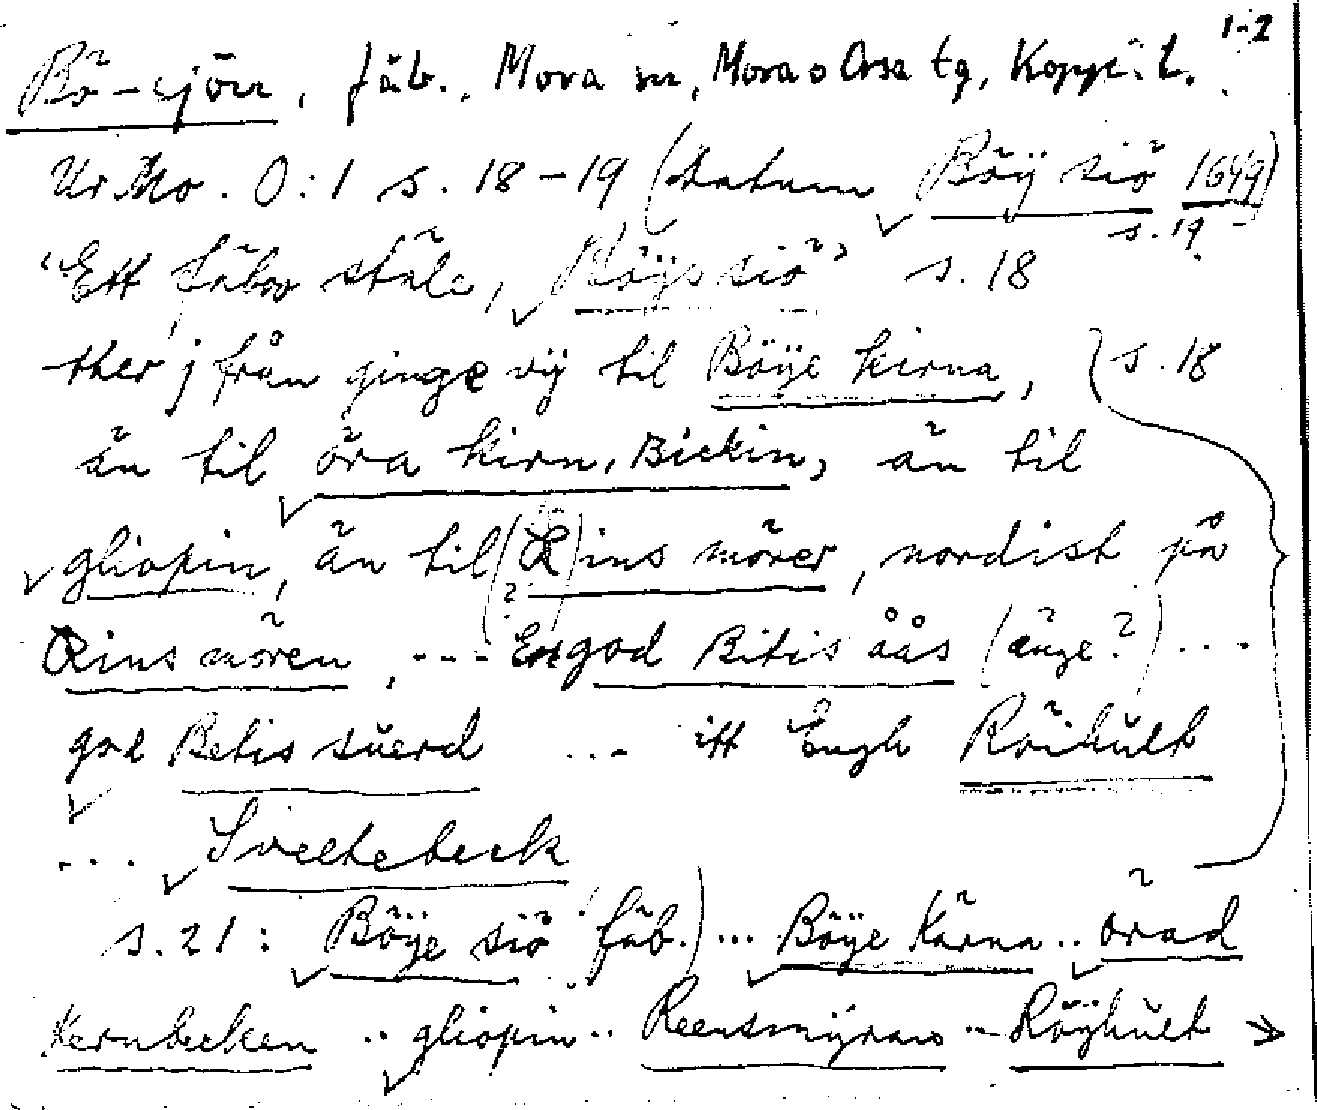 1-2
Bö-sjön, fäb., Mora sn, Mora o Orsa tg, Kopp. l.
Ur Mo. O:1 s. 18-19 (datum Böÿ siö 1649)
s. 19
"Ett fäbov ställe, Böÿs siö" s. 18
ther j från ginge vÿ til Böÿe kirna, } s. 18
än til öra kirn, Bickin, än til
gliopin, än til (R)ins mörer, nordist på
?
Rins mören, --- En god Bitis åås (änge?) ...
god Betis suerd ... itt Engh Röihult
... Sveltebeck
s. 21: Böÿe siö fäb.) ... Böÿe Kärna .. örad
Kernbecken .. gliopin .. Reensmÿran .. Röÿhult →